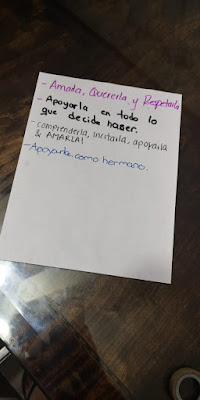 - Amarla, Quererla y Respetarla
- Apoyarla en todo lo
que decide haser.
- comprenderla, incitarla, apoyarla
& AMARLA!
- Apoyarla como hermano.